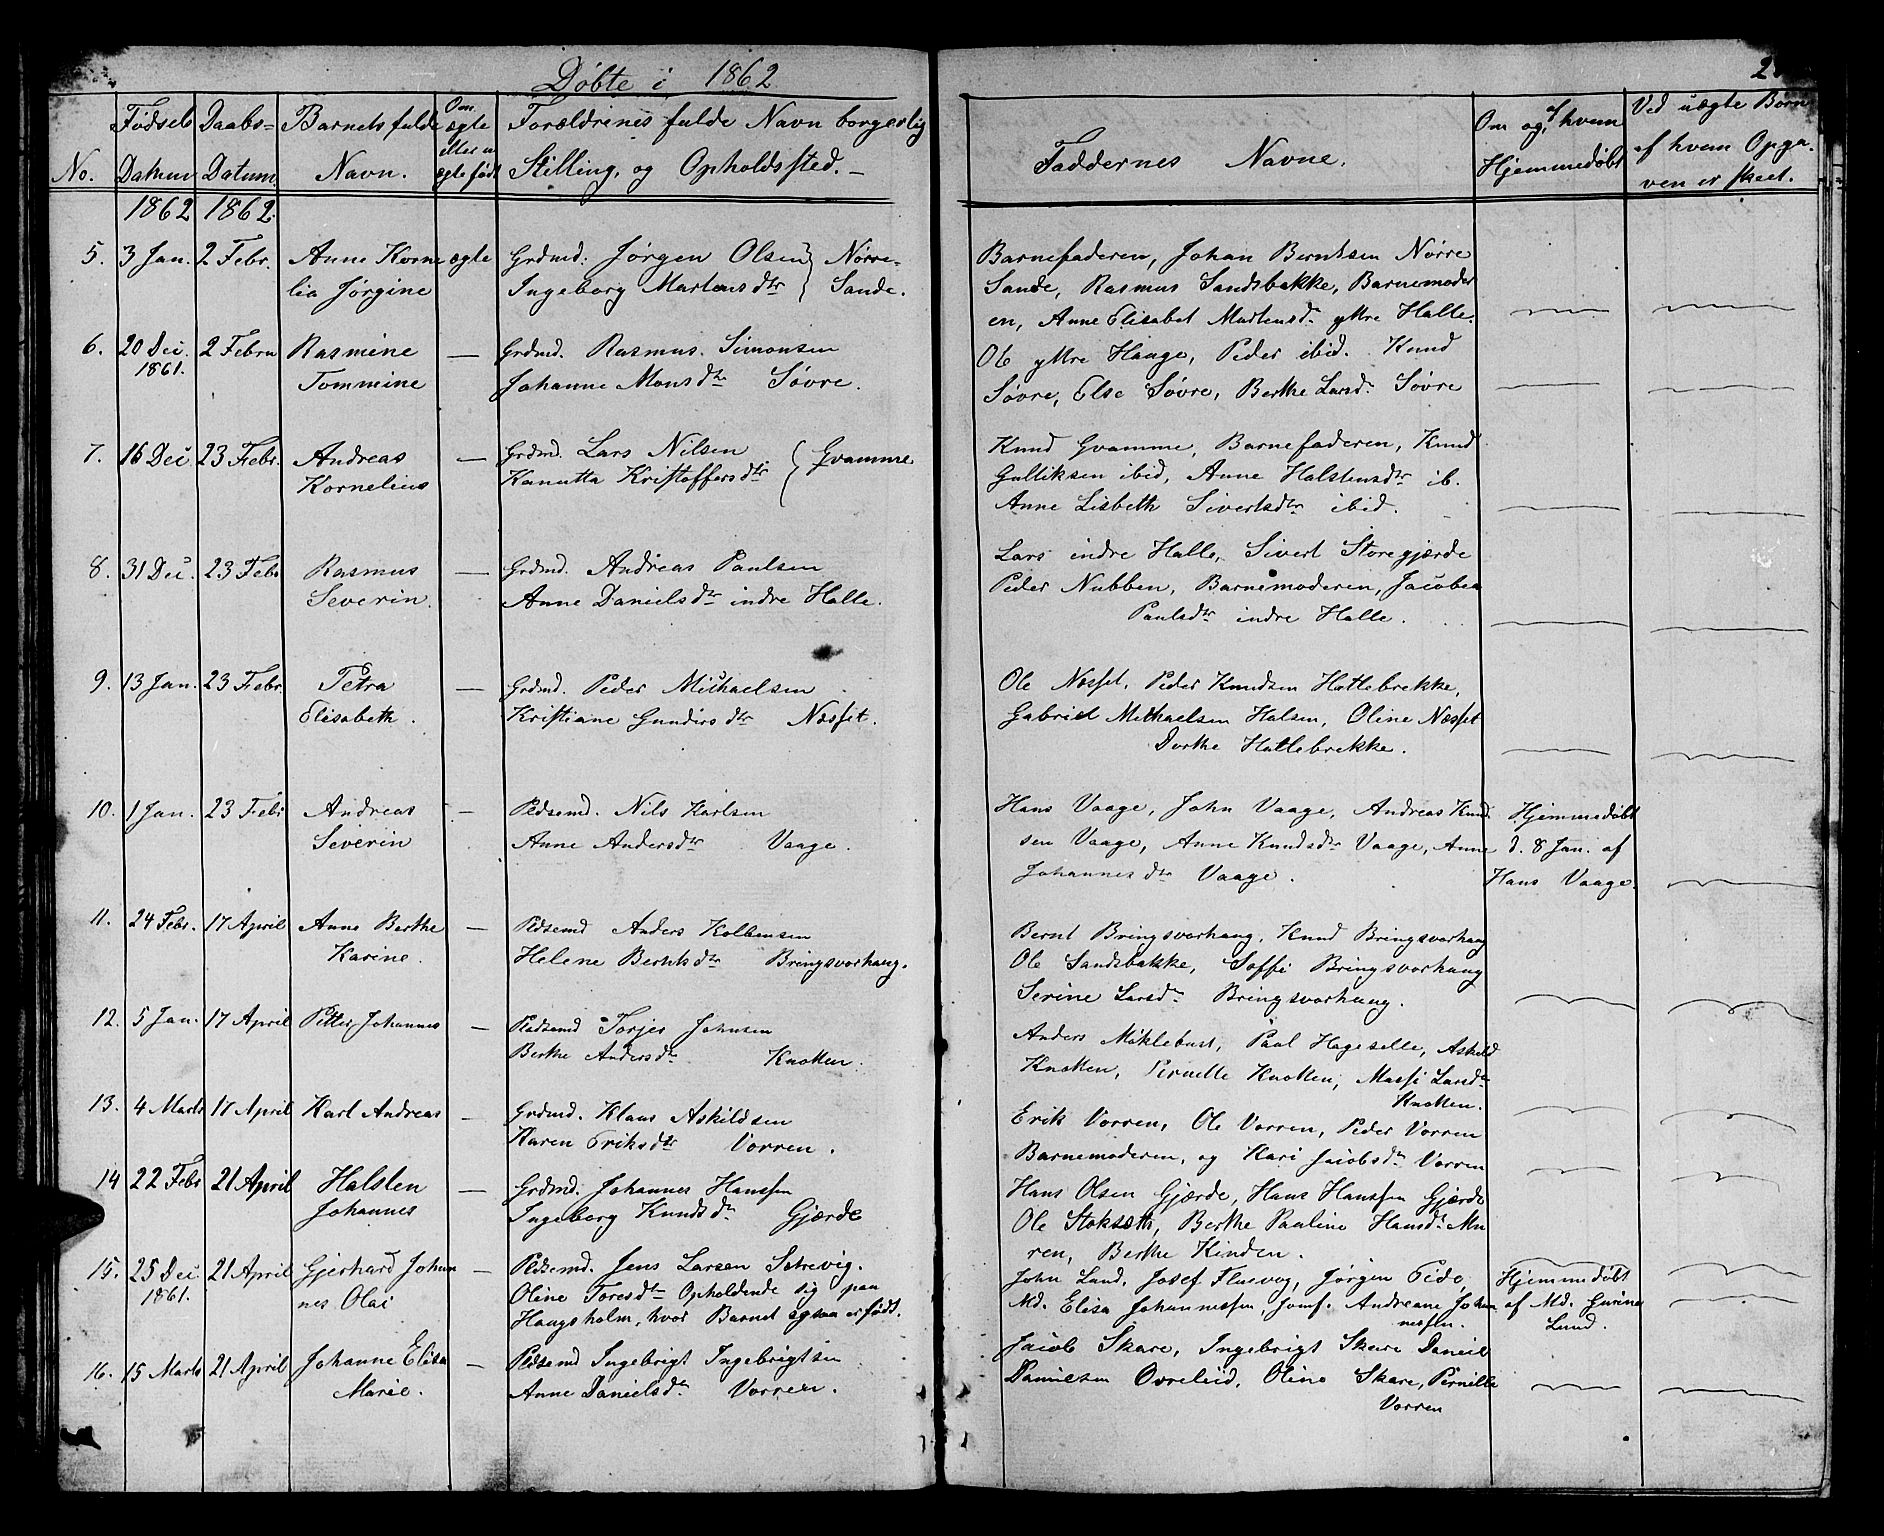 Døbte i 1862
No.
Fødsels
Datum
Daabs-
Datum.
Barnets fulde
Navn.
Om
ægte
eller u
ægte født
Forældrenes fulde Navn borgerlig
Stilling, og Opholdssted.
Faddernes Navne.
Om og af hvem
Hjemmedøbt
Ved uægte Børn
af hvem Opga-
ven er skeet.
1862 1862
5. 3 Jan. 2 Febr. Anne Korne ægte Grdmd. Jørgen Olsen } Nørre-
lia Jørgine Ingeborg Martensdtr } Sande.
Barnefaderen, Johan Berntsen Nørre
Sande, Rasmus Sandsbakke, Barnemoder
en, Anne Elisabet Martensd. yttre Halle.
6. 20 Dec. 2 Febru Rasmine — Grdmd. Rasmus Simonsen
1861. Tommine Johanne Monsdtr Søvre.
Ole yttre Haage, Peder ibid. Knud
Søvre, Else Søvre, Berthe Larsd. Søvre
7. 16 Dec 23 Febr. Andreas — Grdmd. Lars Nilsen { Gvamme
Kornelius Kanutta Kristoffersdtr
Knud Gvamme, Barnefaderen, Knud
Gulliksen ibid, Anne Halstensdtr ib.
Anne Lisbeth Sivertsdtr ibid.
8. 31 Dec. 23 Febr Rasmus — Grdmd. Andreas Paulsen
Severin. Anne Danielsdtr indre Halle.
Lars indre Halle, Sivert Storegjærde
Peder Nubben, Barnemoderen, Jacobea
Paulsdtr indre Halle.
9. 13 Jan. 23 Febr. Petra — Grdmd. Peder Michaelsen
Elisabeth. Kristiane Gundersdtr Næsset.
Ole Næsset, Peder Knudsen Hattebrekke,
Gabriel Michaelsen Halsen, Oline Næsset
Dorthe Hattebrekke.
10. 1 Jan. 23 Febr Andreas — Pldsemd. Nils Karlsen
Severin Anne Andersdtr Vaage.
Hans Vaage, John Vaage, Andreas Knud
sen Vaage, Anne Knudsdtr Vaage, Anne
Johannesdtr Vaage.
Hjemmedøbt
d. 8 Jan. af
Hans Vaage.
11. 24 Febr. 17 April Anne Berthe — Pldsemd Anders Kolbensen
Karine. Helene Berntsdtr Bringsvorhaug.
Bernt Bringsvorhaug, Knud Bringsvorhaug
Ole Sandsbakke, Soffi Bringsvorhaug
Serine Larsd. Bringsvorhaug.
12. 5 Jan. 17 April Petter Johannes — Pldsemd Torjer Johnsen
Berthe Andersdtr Knotten.
Anders Møklebust, Paul Hageselle, Askild
Knotten, Pernelle Knotten, Massi Larsdtr
Knotten.
13. 4 Marts 17 April Karl Andreas — Grdmd. Klaus Askildsen
Karen Eriksdtr Vorren.
Erik Vorren, Ole Vorren, Peder Vorren
Barnemoderen, og Kari Jacobsdtr Vorren
14 22 Febr 21 April Halsten — Grdmd. Johannes Hanssen
Johannes Ingeborg Knudsdtr Gjærde
Hans Olsen Gjærde, Hans Hanssen Gjærde
Ole Stokseth, Berthe Pauline Hansdtr Mu
ren, Berthe Kinden.
15. 25 Dec 21 April Gjerhard Johan — Pldsemd. Jens Larsen Sætrevig.
1861. nes Olai Oline Toresdtr Opholdende sig paa
Haugsholm, hvor Barnet ogsaa er født.
John Lund, Josef Fluevog, Jørgen Eide,
Md. Elisa Johannessen, Jomf. Andreane Johan
nessen.
Hjemmedøbt
af Md. Gurine
Lund.
16. 15 Marts 21 April Johanne Elisa — Pldsemd Ingebrigt Ingebrigtsen
Marie. Anne Danielsdtr Vorren.
Jacob Skare, Ingebrigt Skare Daniel
Danielsen Overleid, Oline Skare, Pernille
Vorren